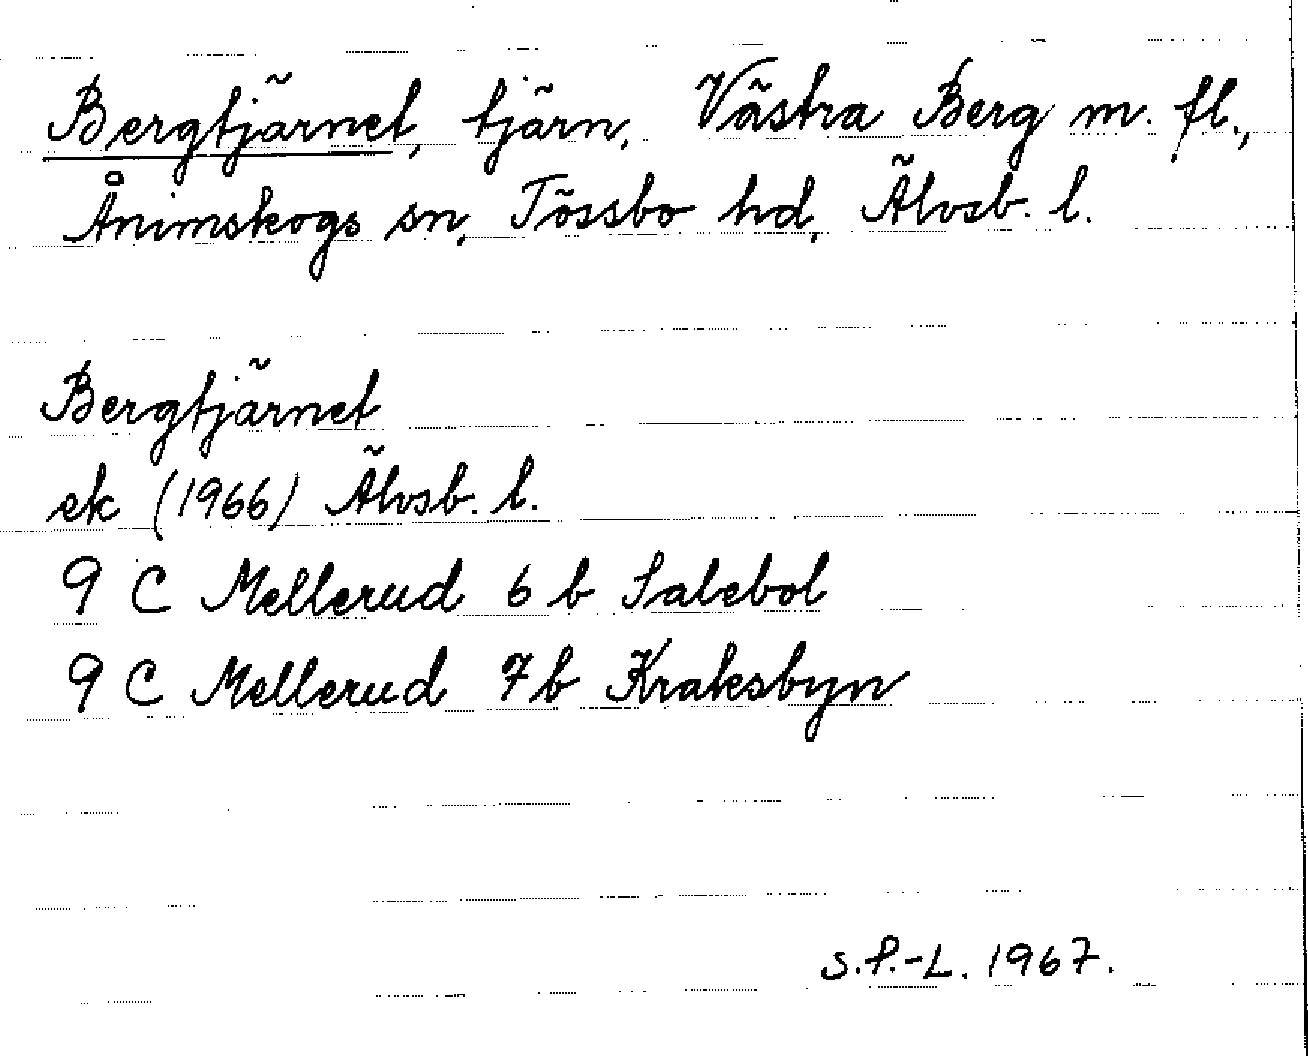 Bergtjärnet, tjärn, Västra Berg m. fl.,
Ånimskogs sn, Tössbo hd, Älvsb. l.
Bergtjärnet
ek (1966) Älvsb. l.
9 C Mellerud 6 b Salebol
9 C Mellerud 7 b Kraksbyn
S.P.-L. 1967.